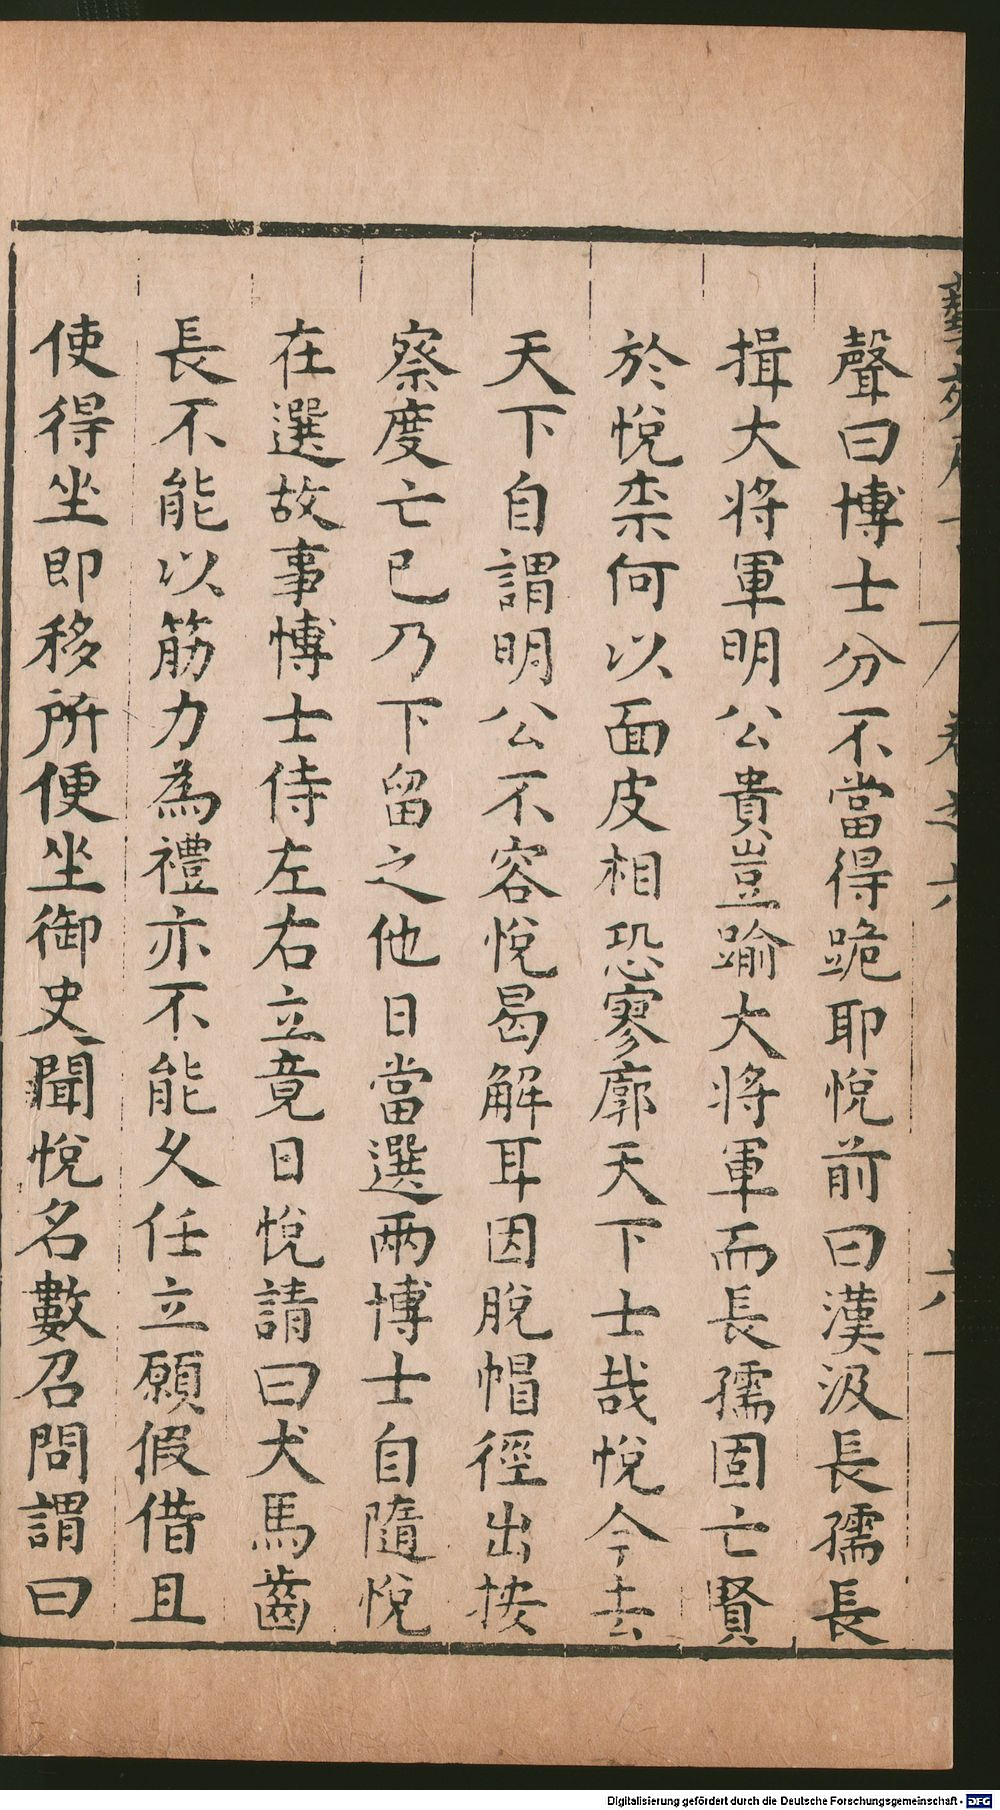 聲曰博士分不當得跪耶悅前曰漢汲長孺長
揖大將軍明公貴豈踰大將軍而長孺固亡賢
於悅柰何以面皮相恐寥廓天下士哉悅今去
天下自謂明公不容悅曷解耳因脫帽徑出按
察度亡已乃下留之他日當選兩博士自隨悅
在選故事博士侍左右立竟日悅請曰犬馬齒
長不能以筋力為禮亦不能久任立願假借且
使得坐即移所便坐御史聞悅名數召問謂曰
卷之六
Digitalisierung gefördert durch die Deutsche Forschungsgemeinschaft - DFG